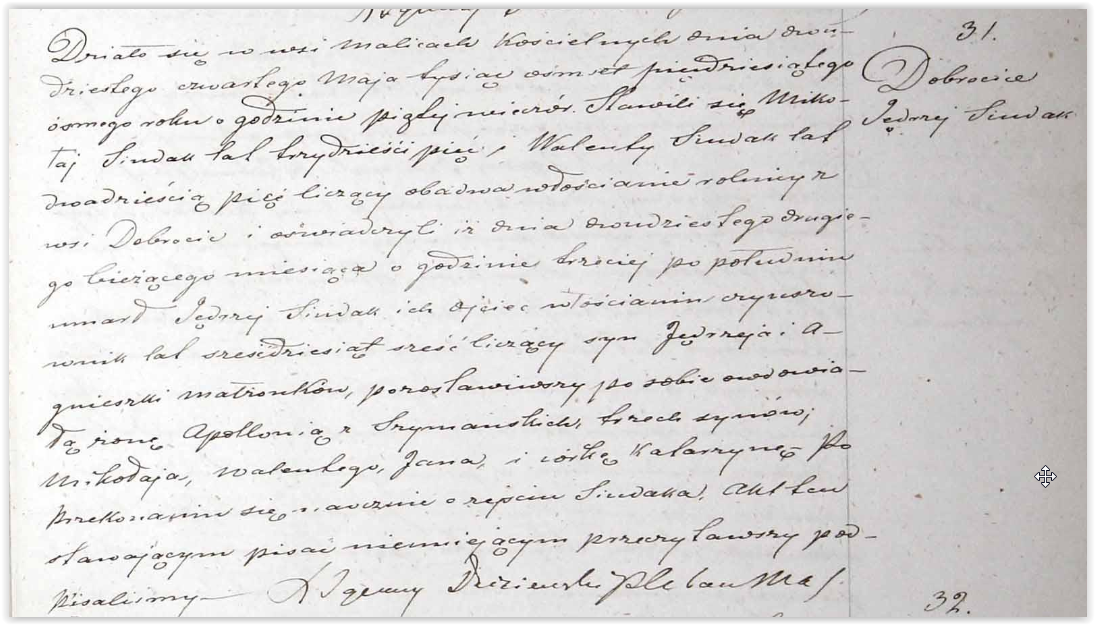 31.
Dobrocice
Jędrzej Siudak
Działo się w wsi Malicach Kościelnych dnia dwu-
dziestego czwartego Maja tysiąc ośmset piędziesiątego
ósmego roku o godzinie piątej wieczór. Stawili się Miko-
łaj Siudak lat trzydzieści pięć i Walenty Siudak lat
dwadzieścia pięć liczący obadwa włościanie rolnicy z
wsi Dobrocic i oświadczyli iż dnia dwudziestego drugie-
go bieżącego miesiąca o godzinie trzeciej po południu
umarł Jędrzej Siudak ich Ojciec włościanin czynszo-
wnik lat sześćdziesiąt sześć liczący syn Jędrzeja i A-
gnieszki małżonków, pozostawiwszy po sobie owdowia-
łą żonę Apollonią z Szymańskich, trzech synów;
Mikołaja, Walentego, Jana, i córkę Katarzynę. Po
przekonaniu się naocznie o zejściu Siudaka, Akt ten
stawającym pisać nieumiejącym przeczytawszy pod-
pisaliśmy
Pleban Mal.
32.